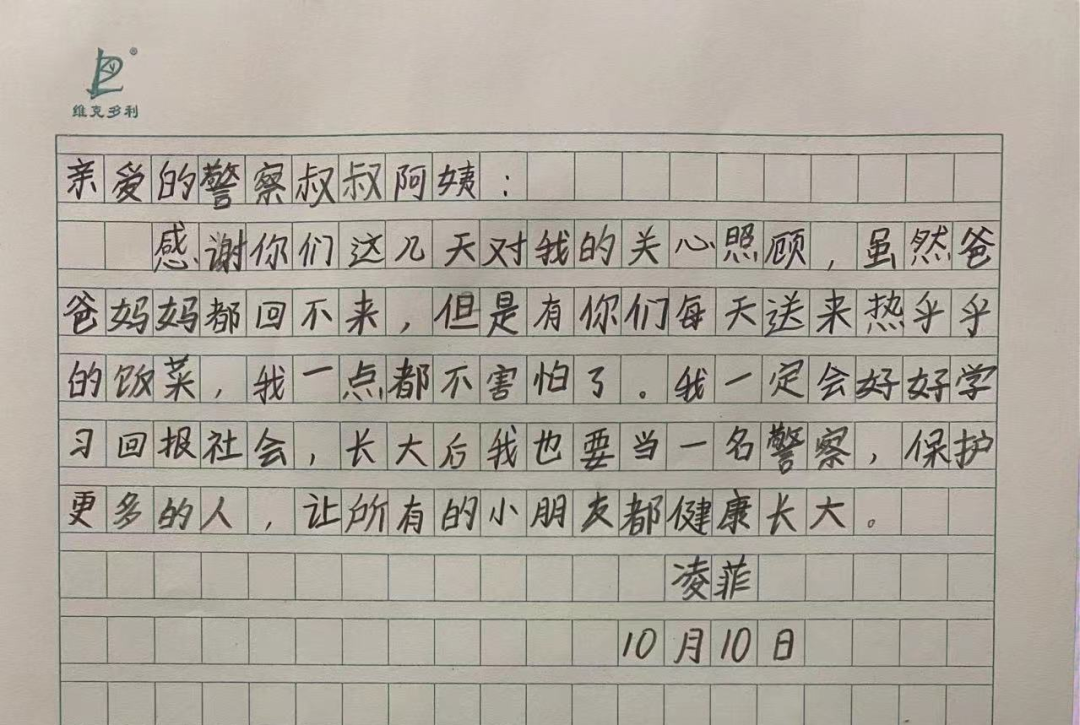 维克多利
亲爱的警察叔叔阿姨：
感谢你们这几天对我的关心照顾，虽然爸
爸妈妈都回不来，但是有你们每天送来热乎乎
的饭菜，我一点都不害怕了。我一定会好好学
习回报社会，长大后我也要当一名警察，保护
更多的人，让所有的小朋友都健康长大。
凌菲
10月10日